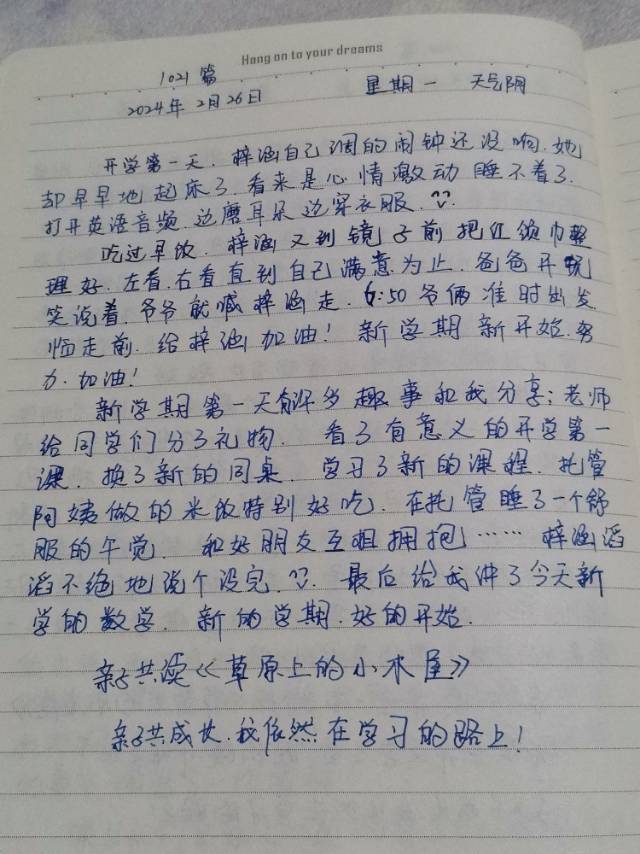 Hang on to your dreams
1021篇
2024年2月26日 星期一 天气阴
开学第一天.梓涵自己调的闹钟还没响.她
却早早地起床了.看来是心情激动睡不着了.
打开英语音频.边磨耳朵边穿衣服.
吃过早饭.梓涵又到镜子前把红领巾整
理好.左看.右看直到自己满意为止.爸爸开玩
笑说着.爷爷就喊梓涵走.6:50爷俩准时出发
临走前.给梓涵加油!新学期新开始.努
力.加油!
新学期第一天有许多趣事和我分享:老师
给同学们分了礼物.看了有意义的开学第一
课.换了新的同桌.学习了新的课程.托管
阿姨做的米饭特别好吃.在托管睡了一个舒
服的午觉.和好朋友互相拥抱……梓涵滔
滔不绝地说个没完.最后给我讲了今天新
学的数学.新的学期.好的开始.
亲子共读《草原上的小木屋》
亲子共成长.我依然在学习的路上!